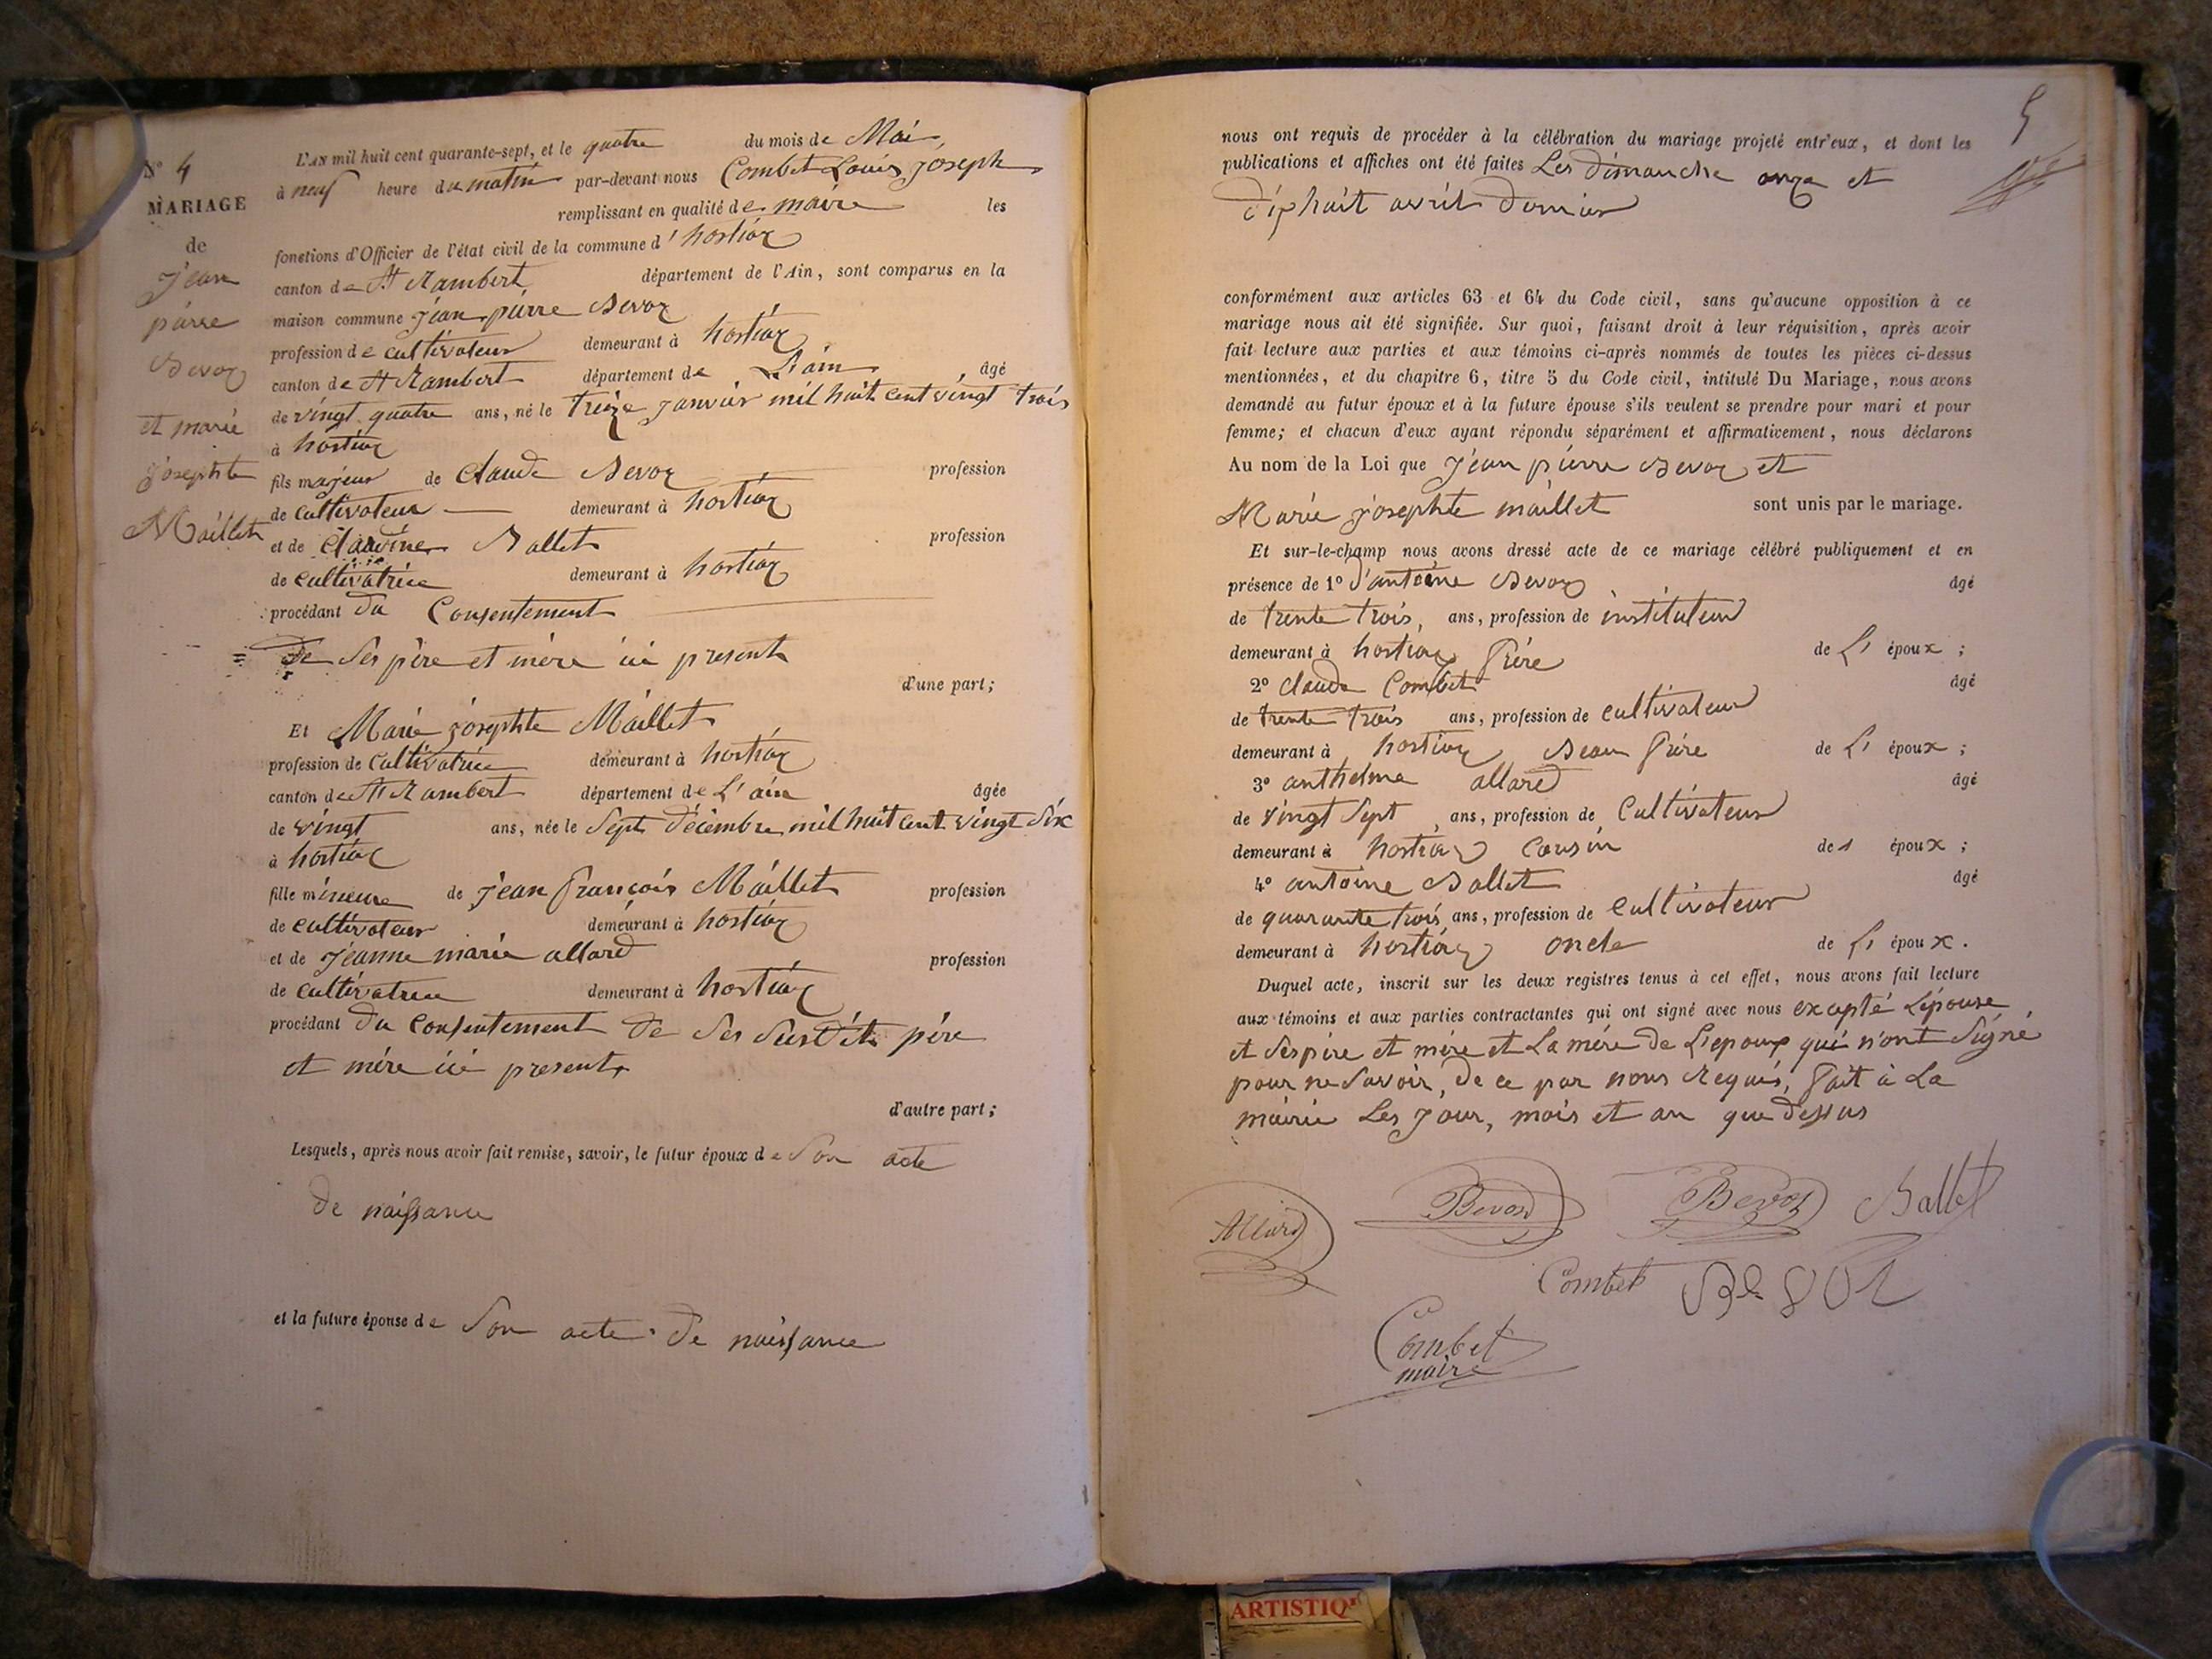 N° 4
MARIAGE
de
Jean
pierre
Bevoz
et marie
josephte
Maillet
L'AN mil huit cent quarante-sept, et le quatre du mois de Mai,
à neuf heure du matin par-devant nous Combet Louis Joseph
remplissant en qualité de maire les
fonctions d'Officier de l'état civil de la commune d'hostiaz
canton de St Rambert département de l'Ain, sont comparus en la
maison commune jean pierre Bevoz
profession de cultivateur demeurant à hostiaz
canton de St Rambert département de L'ain âgé
de vingt quatre ans, né le treize janvier mil huit cent vingt trois
à hostiaz
fils majeur de Claude Bevoz profession
de cultivateur demeurant à hostiaz
et de claudine Ballet profession
de cultivatrice demeurant à hostiaz
procédant du Consentement
de ses père et mère ici present
d'une part;
Et Marie josephte Maillet
profession de cultivatrice demeurant à hostiaz
canton de St Rambert département de L'ain âgée
de vingt ans, née le sept décembre mil huit cent vingt six
à hostiaz
fille mineure de jean françois Maillet profession
de cultivateur demeurant à hostiaz
et de jeanne marie allard profession
de cultivatrice demeurant à hostiaz
procédant du consentement de ses susdits père
et mère ici present,
d'autre part;
Lesquels, après nous avoir fait remise, savoir, le futur époux de son acte
de naissance
et la future épouse de son acte de naissance
5
nous ont requis de procéder à la célébration du mariage projeté entr'eux, et dont les
publications et affiches ont été faites Les dimanche onze et
dix huit avril dernier
conformément aux articles 63 et 64 du Code civil, sans qu'aucune opposition à ce
mariage nous ait été signifiée. Sur quoi, faisant droit à leur réquisition, après avoir
fait lecture aux parties et aux témoins ci-après nommés de toutes les pièces ci-dessus
mentionnées, et du chapitre 6, titre 5 du Code civil, intitulé Du Mariage, nous avons
demandé au futur époux et à la future épouse s'ils veulent se prendre pour mari et pour
femme; et chacun d'eux ayant répondu séparément et affirmativement, nous déclarons
Au nom de la Loi que Jean pierre Bevoz et
Marie josephte maillet sont unis par le mariage.
Et sur-le-champ nous avons dressé acte de ce mariage célébré publiquement et en
présence de 1° d'antoine Bevoz âgé
de trente trois, ans, profession de instituteur
demeurant à hostiaz frère de L' époux;
2° claude Combet âgé
de trente trois ans, profession de cultivateur
demeurant à hostiaz Beau frère de L' époux;
3° anthelme allard âgé
de vingt sept ans, profession de Cultivateur
demeurant à hostiaz cousin de l époux;
4° antoine Ballet âgé
de quarante trois ans, profession de cultivateur
demeurant à hostiaz oncle de L' époux.
Duquel acte, inscrit sur les deux registres tenus à cet effet, nous avons fait lecture
aux témoins et aux parties contractantes qui ont signé avec nous excepté L'épouse
et ses père et mère et La mère de L'epoux qui n'ont signé
pour ne savoir, de ce par nous Requis, fait à La
mairie Les jour, mois et an que dessus
Allard Bevoz Bevoz Ballet
Combet BeVOZ
Combet
maire
ARTISTIQ